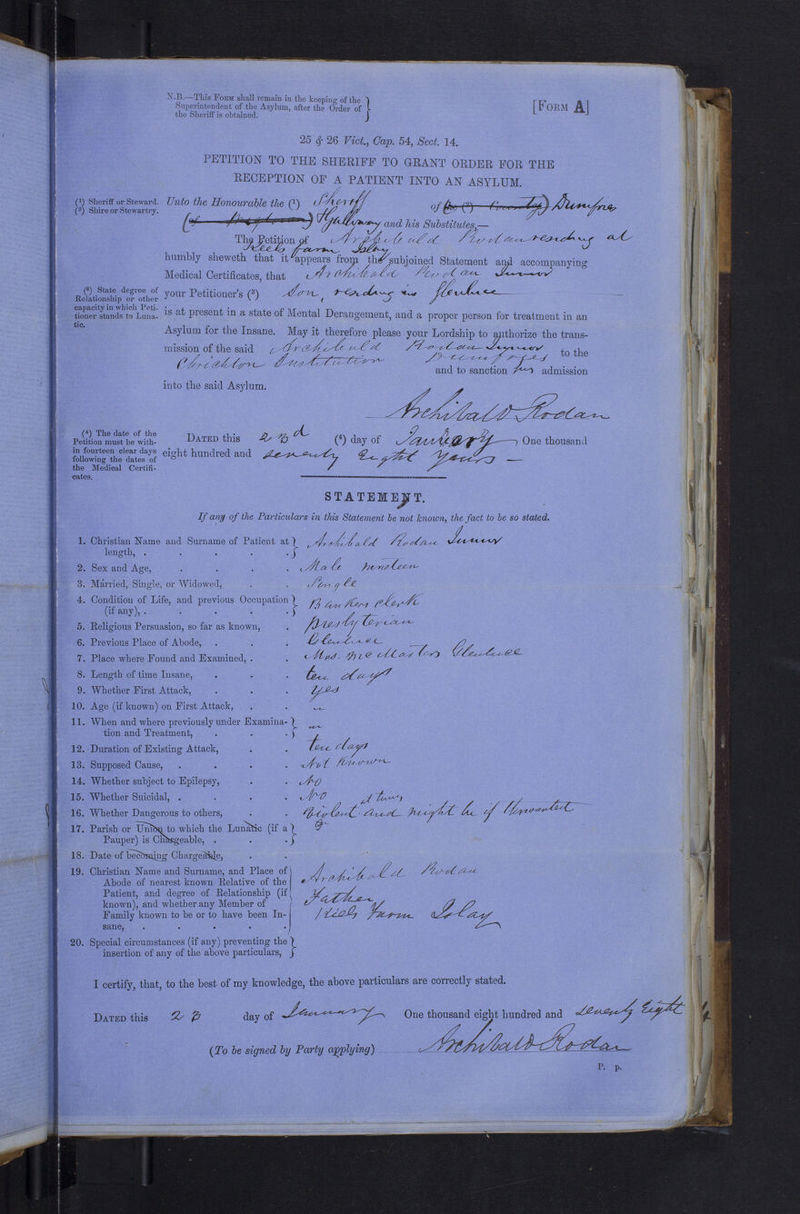 N.B.—This Form shall remain in the keeping of the
Superintendent of the Asylum, after the Order of
the Sheriff is obtained.
[Form A]
25 & 26 Vict., Cap. 54, Sect. 14.
PETITION TO THE SHERIFF TO GRANT ORDER FOR THE
RECEPTION OF A PATIENT INTO AN ASYLUM.
(¹) Sheriff or Steward.
(²) Shire or Stewartry.
Unto the Honourable the (¹) Sheriff of Dumfries
& Galloway and his Substitutes,—
The Petition of Archibald Rodan residing at
Keels farm Islay
humbly sheweth that it appears from the subjoined Statement and accompanying
Medical Certificates, that Archibald Rodan Junior
(³) State degree of
Relationship or other
capacity in which Peti-
tioner stands to Luna-
tic.
your Petitioner's (³) Son, residing in Glenluce
is at present in a state of Mental Derangement, and a proper person for treatment in an
Asylum for the Insane. May it therefore please your Lordship to authorize the trans-
mission of the said Archibald Rodan Junior to the
Chrichton Institution Dumfries and to sanction his admission
into the said Asylum.
Archibald Rodan
(⁴) The date of the
Petition must be with-
in fourteen clear days
following the dates of
the Medical Certifi-
cates.
Dated this 23d (⁴) day of January One thousand
eight hundred and seventy Eight Years
STATEMENT.
If any of the Particulars in this Statement be not known, the fact to be so stated.
1. Christian Name and Surname of Patient at length, . Archibald Rodan Junior
2. Sex and Age, Male nineteen
3. Married, Single, or Widowed, Single
4. Condition of Life, and previous Occupation (if any), . Bankers Clerk
5. Religious Persuasion, so far as known, Presbyterian
6. Previous Place of Abode, Glenluce
7. Place where Found and Examined, Mrs. McMasters Glenluce
8. Length of time Insane, ten days
9. Whether First Attack, Yes
10. Age (if known) on First Attack, "
11. When and where previously under Examina-
tion and Treatment, "
12. Duration of Existing Attack, ten days
13. Supposed Cause, Not Known
14. Whether subject to Epilepsy, No
15. Whether Suicidal, No
16. Whether Dangerous to others, Violent at times and might be if
17. Parish or Union to which the Lunatic (if a
Pauper) is Chargeable,
18. Date of becoming Chargeable,
19. Christian Name and Surname, and Place of
Abode of nearest known Relative of the
Patient, and degree of Relationship (if
known), and whether any Member of
Family known to be or to have been In-
sane,
Archibald Rodan
Father
Kiels Farm Islay
20. Special circumstances (if any) preventing the
insertion of any of the above particulars,
I certify, that, to the best of my knowledge, the above particulars are correctly stated.
Dated this 23 day of January One thousand eight hundred and seventy Eight
(To be signed by Party applying) Archibald Rodan
P. p.